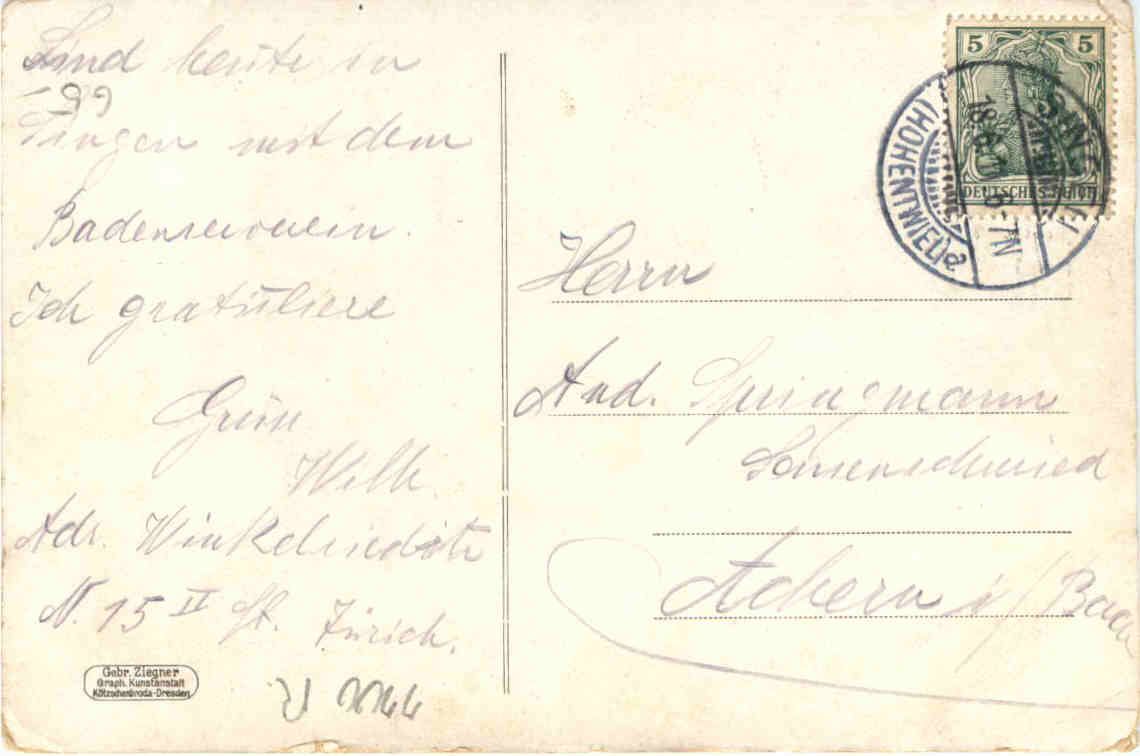 Sind heute in
Singen mit dem
Badenserverein.
Ich gratuliere
Grüss
Wilh.
Adr. Winkelriedstr
N. 15 II St. Zürich.
Gebr. Ziegner
Graph. Kunstanstalt
Kötzschenbroda-Dresden
5 5
DEUTSCHES REICH
SINGEN
(HOHENTWIEL) a
6-7N
Herrn
And. Springmann
Sensenschmied
Achern i/ Baden